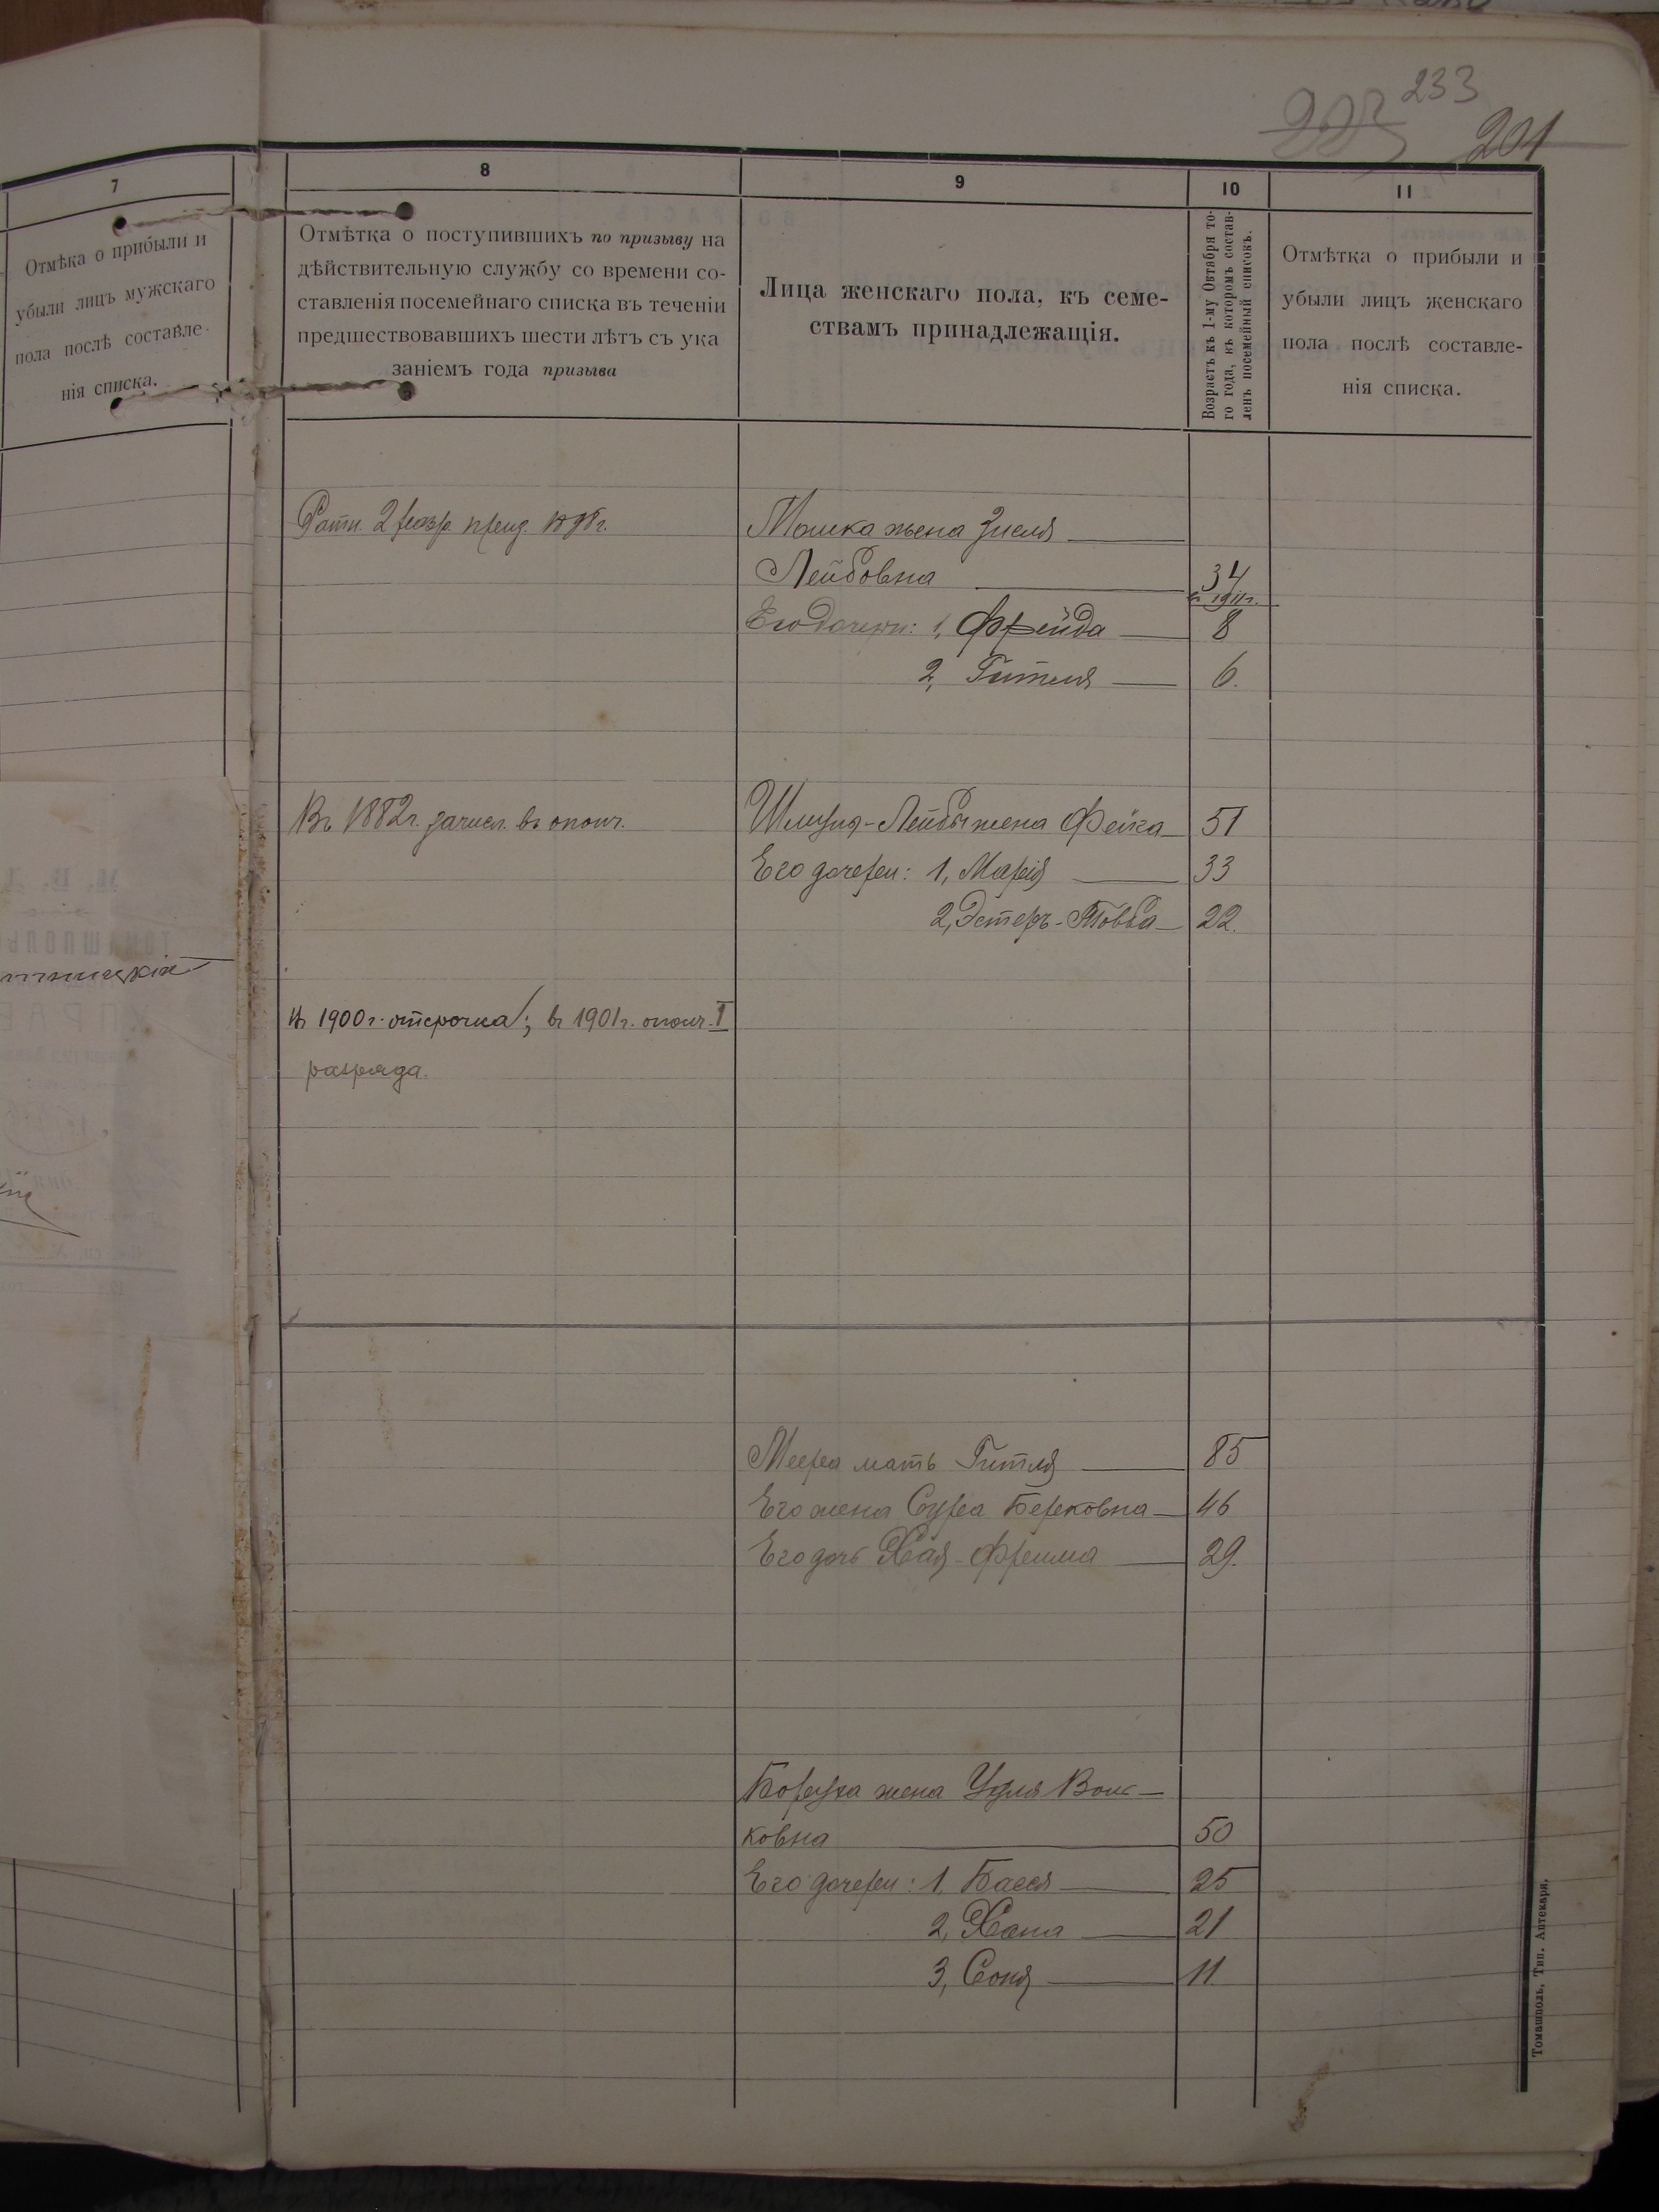 233
201
7
Отмѣка о прибыли и
убыли лицъ мужскаго
пола послѣ составле-
нія списка.
8
Отмѣтка о поступившихъ по призыву на
дѣйствительную службу со времени со-
ставленія посемейнаго списка въ теченіи
предшествовавшихъ шести лѣтъ съ ука
заніемъ года призыва
9
Лица женскаго пола, къ семе-
ствамъ принадлежащія.
10
Возрастъ къ 1-му Октября то-
го года, въ которомъ состав-
ленъ посемейный списокъ.
11
Отмѣтка о прибыли и
убыли лицъ женскаго
пола послѣ составле-
нія списка.
Ратн. 2 разр.
Мошка жена Зиселя
Лейбовна 34
в 1911г.
Его дочери: 1, Фрейда 8
2, Гителя 6.
Въ 1882г. зачисл. въ ополч.
Шмуля-Лейбы жена Фейга 51
Его дочери: 1, Марія 33
2, Эстеръ-Товба 22.
въ 1900г. отсрочка; в 1901г. ополч. I
разряда.
Меера мать Гитля 85
Его жена Сура Берковна 46
Его дочь Хая-Фрима 29.
Боруха жена Удля Воль-
ковна 50
Его дочери: 1, Бася 25
2, Хана 21
3, Соня 11
Томашполь, Тип. Аптекаря.